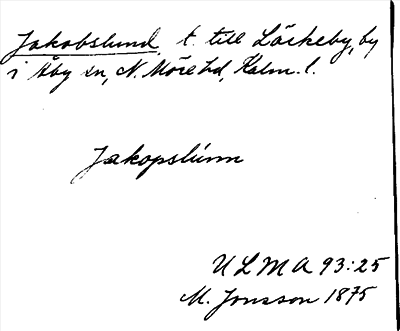 Jakobslund, t. till Läckeby, by
i Åby sn, N. Möre hd, Kalm. l.
Jakopslúnn
ULMA 93:25
M. Jonsson 1875